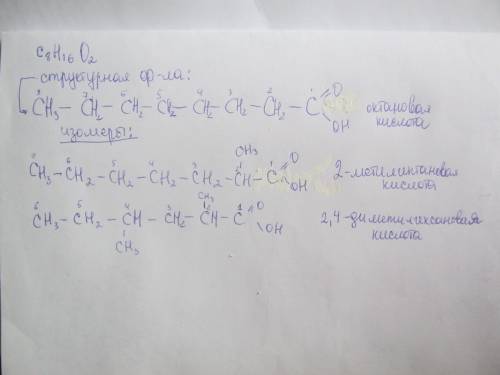 C₈H₁₆O₂
структурная ф-ла:
⁸CH₃ – ⁷CH₂ – ⁶CH₂ – ⁵CH₂ – ⁴CH₂ – ³CH₂ – ²CH₂ – ¹C O OH октановая кислота
изомеры:
CH₃
⁷CH₃ – ⁶CH₂ – ⁵CH₂ – ⁴CH₂ – ³CH₂ – ²CH – ¹C O OH 2-метилгептановая кислота
CH₃
⁶CH₃ – ⁵CH₂ – ⁴CH – ³CH₂ – ²CH – ¹C O OH 2,4-диметилгексановая кислота
CH₃